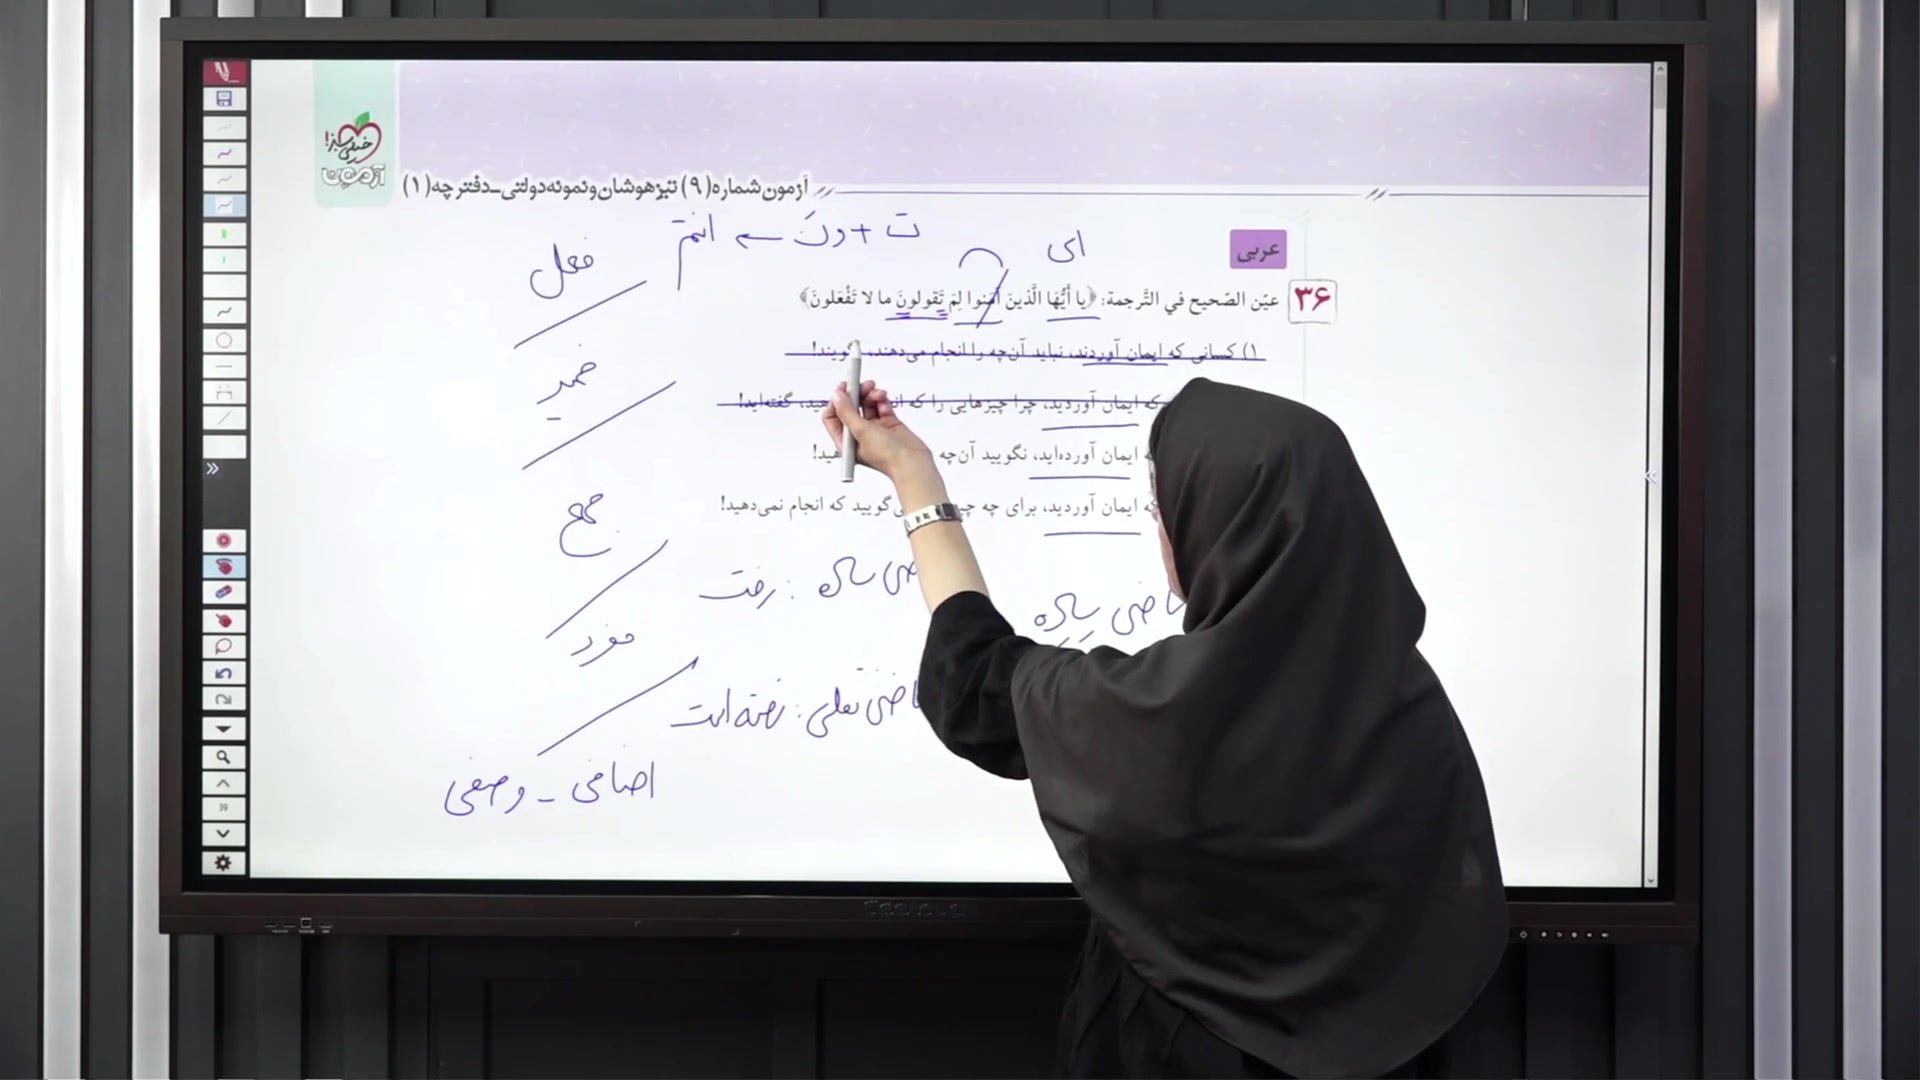 خیلی سبز!
آزمون
آزمون شماره (۹) تیزهوشان و نمونه دولتی ـ دفترچه (۱)
ت + ونَ ← انتم
ای
عربی
۳۶
عیّن الصّحیح في التَّرجمة: ﴿یا أَیُّهَا الَّذینَ آمَنوا لِمَ تَقولونَ ما لا تَفْعَلونَ﴾
۱) کسانی که ایمان آوردند، نباید آن‌چه را انجام می‌دهند، گویند!
که ایمان آوردید، چرا چیزهایی را که هید، گفته‌اید!
ایمان آورده‌اید، نگویید آن‌چه هید!
که ایمان آوردید، برای چه گویید که انجام نمی‌دهید!
فعل
ضمیر
جمع
مفرد
اضافی ـ وصفی
ساده : رفت
ماضی نقلی : رفته است
ماضی ساده
39